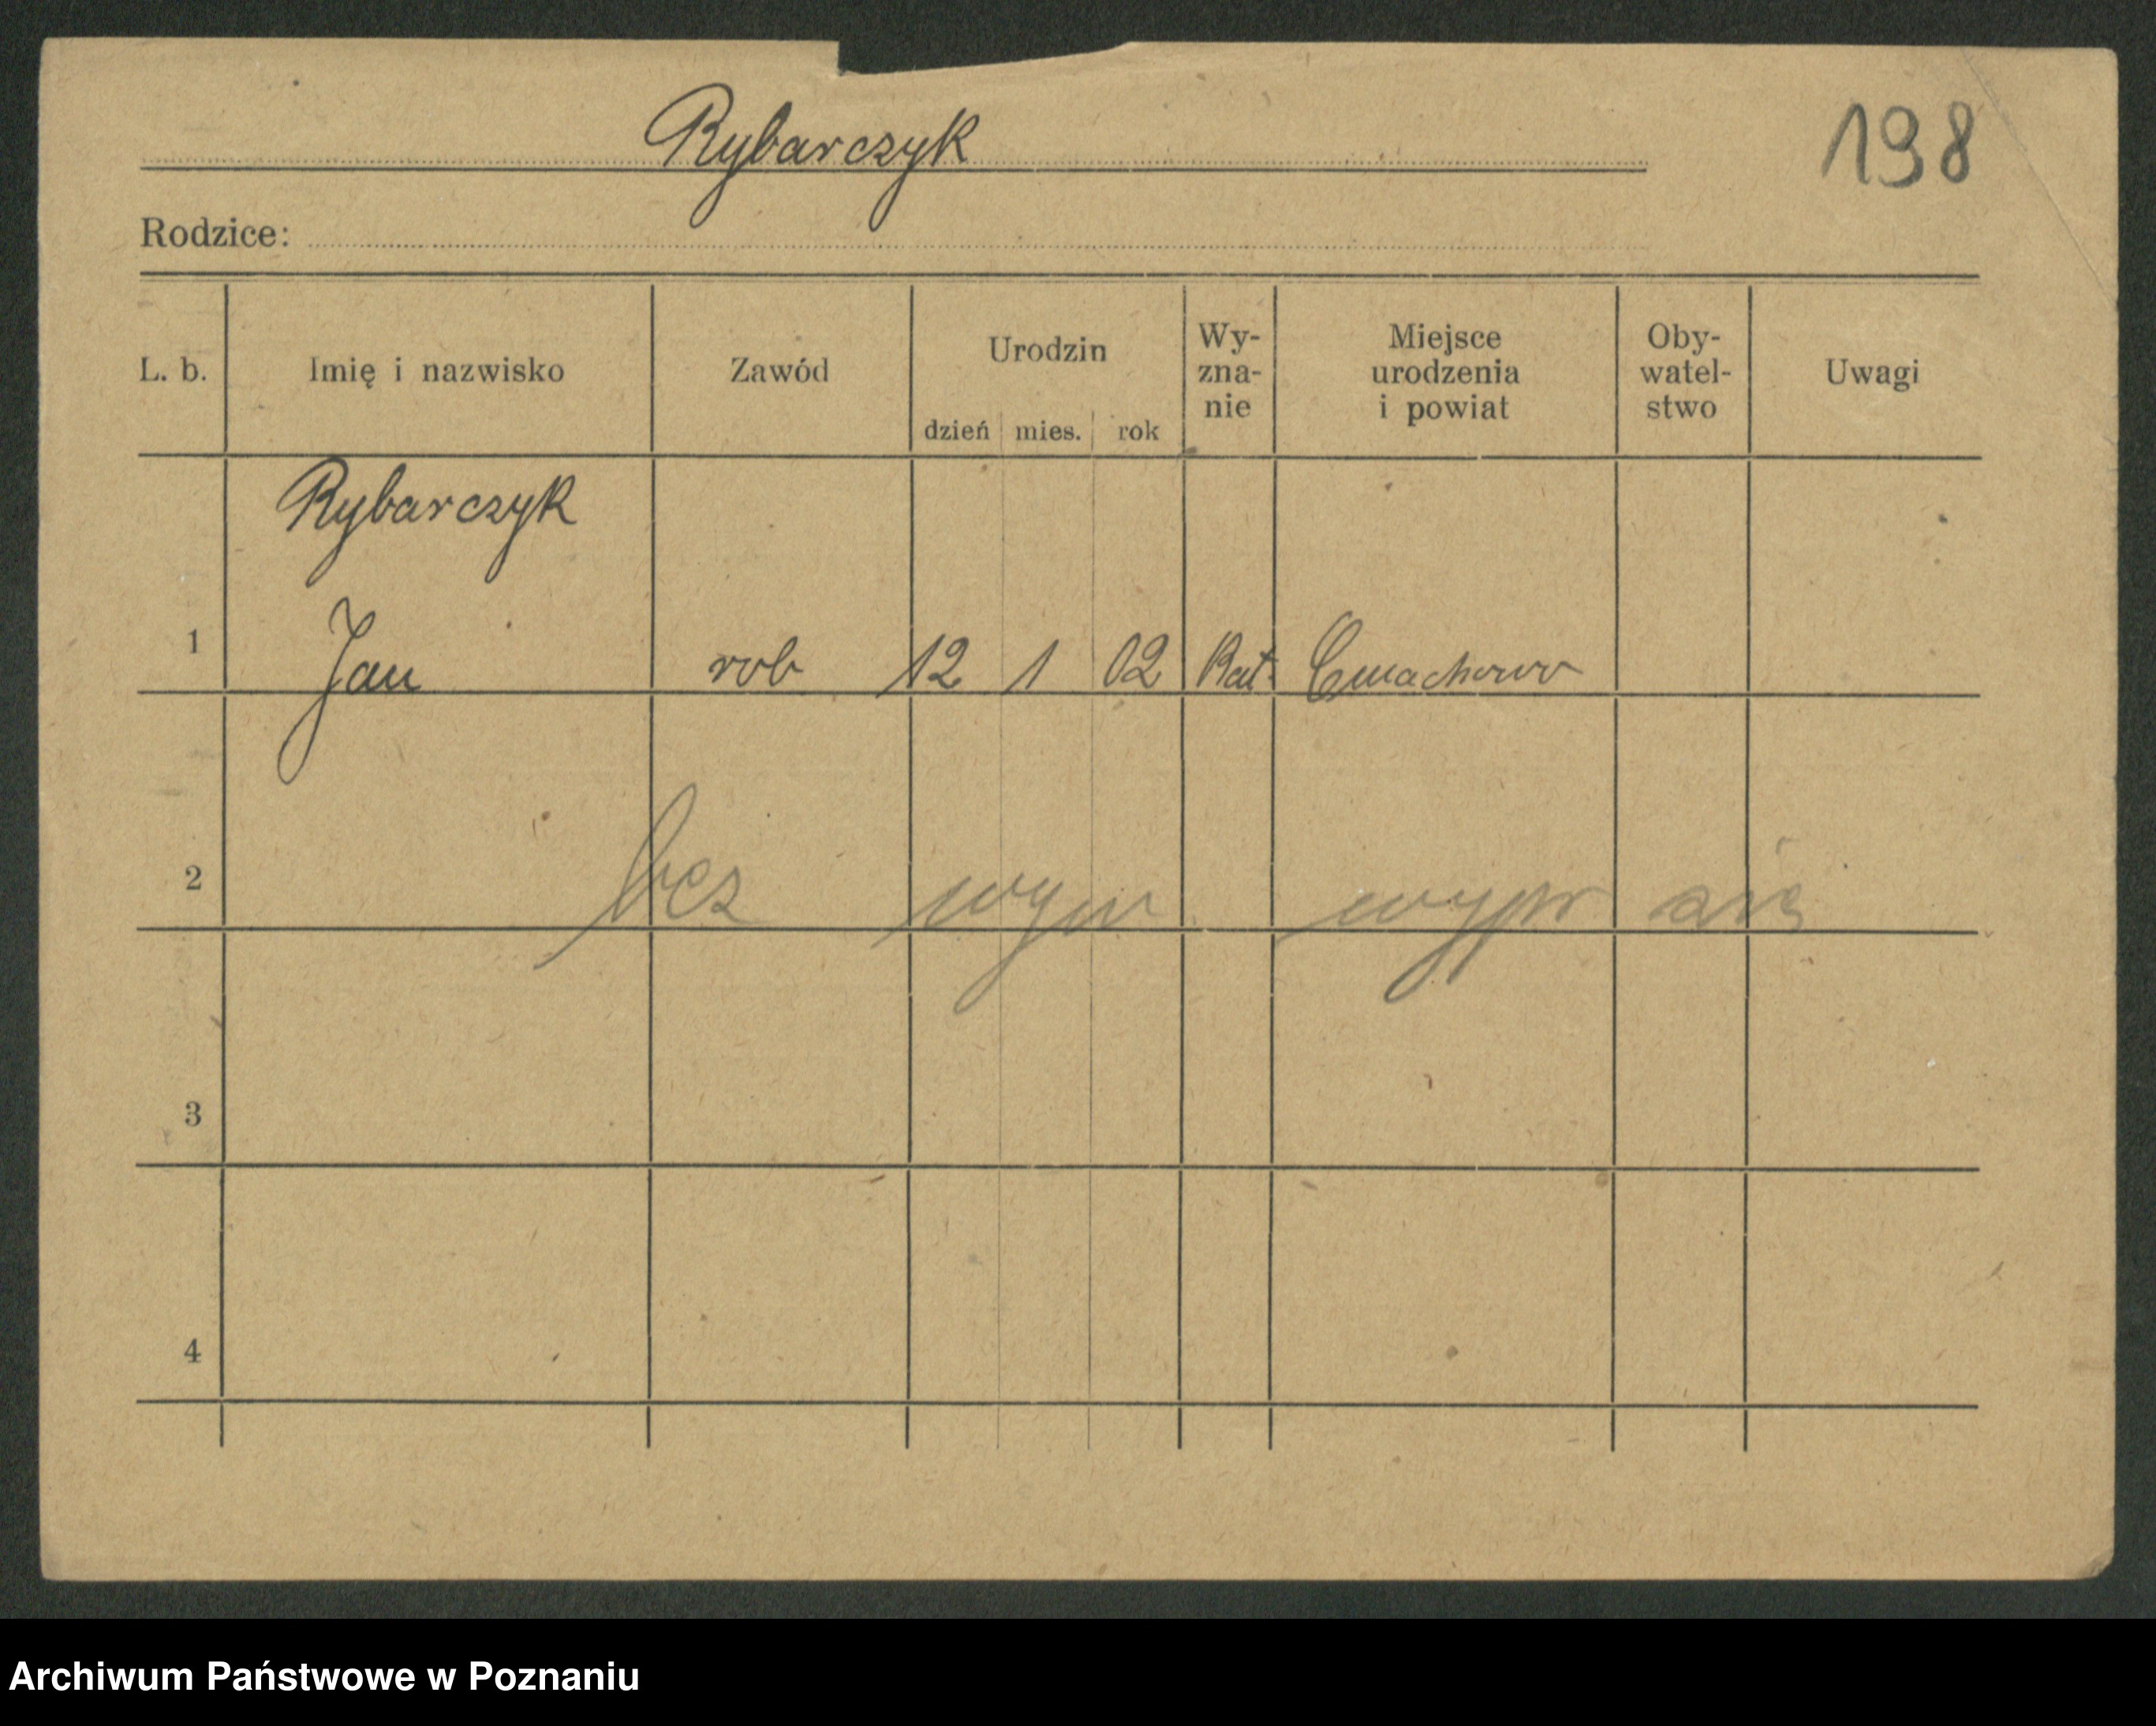 Rybarczyk
198
Rodzice:
L. b. Imię i nazwisko Zawód Urodzin dzień mies. rok Wy-zna-nie Miejsce urodzenia i powiat Oby-watel-stwo Uwagi
Rybarczyk
1 Jan rob 12 1 02 Kat. Ćmachowo
2 bez wym wypr się
3
4
Archiwum Państwowe w Poznaniu